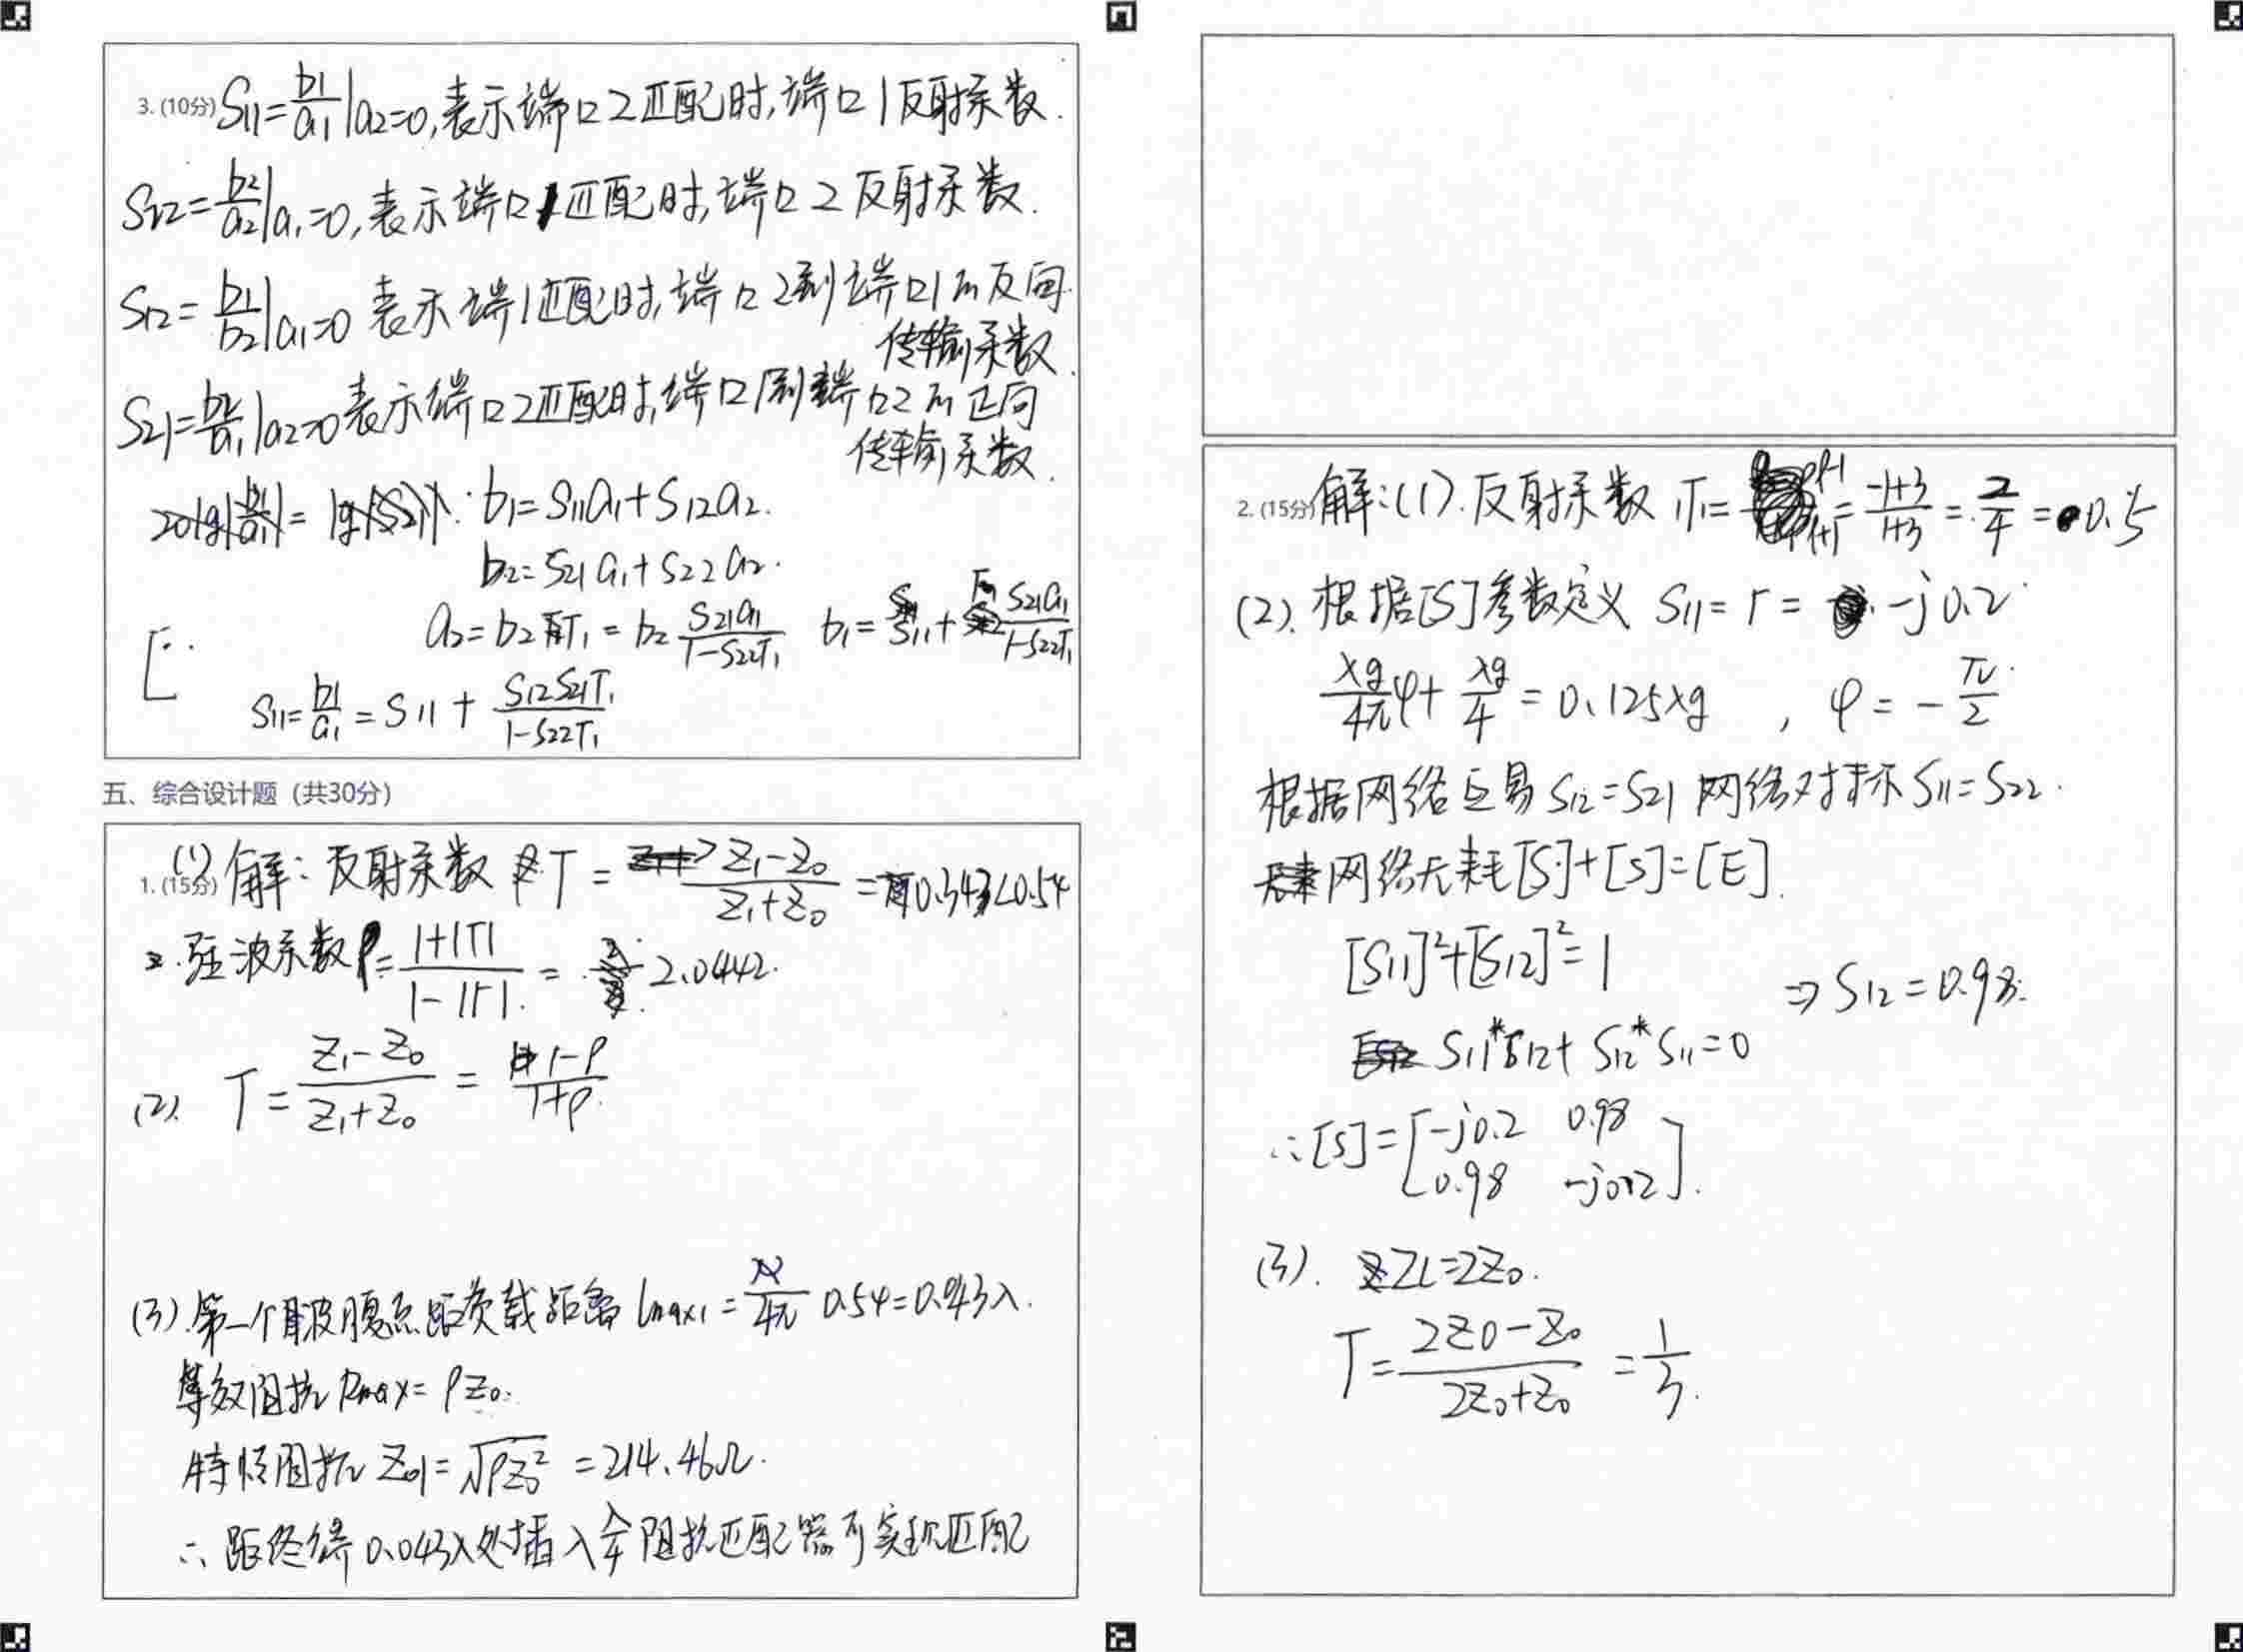 3. (10分) S11=b1/a1|a2=0,表示端口2匹配时,端口1反射系数.
S22=b2/a2|a1=0,表示端口1匹配时,端口2反射系数.
S12=b1/b2|a1=0 表示端1匹配时,端口2到端口1的反向
传输系数
S21=b2/a1|a2=0表示端口2匹配时,端口1到端口2的正向
传输系数.
b1=S11a1+S12a2.
b2=S21a1+S22a2.
S11=b1/a1=S11+S12S21Γ1/1-S22Γ1
五、综合设计题（共30分）
1. (15分) (1) 解:反射系数 Γ=Z1-Z0/Z1+Z0=0.343∠0.54
驻波系数ρ=1+|Γ|/1-|Γ|.=2.0442.
(2). Γ=Z1-Z0/Z1+Z0=1-ρ/1+ρ.
(3).第一个波腹点距负载距离 lmax1=λ/4π 0.54=0.043λ.
等效阻抗Rmax=ρZ0.
特性阻抗 Z01=√ρZ0²=214.46Ω.
∴距终端0.043λ处插入λ/4阻抗匹配器可实现匹配
2. (15分) 解:(1).反射系数 Γ1=ρ-1/ρ+1=-1+3/1+3=2/4=0.5
(2).根据[S]参数定义 S11=Γ=-j0.2
λg/4πφ+λg/4=0.125λg , φ=-π/2.
根据网络互易S12=S21 网络对称S11=S22.
网络无耗[S]+[S]=[E].
[S11]²+[S12]²=1
⇒S12=0.98.
S11*S12+S12*S11=0
∴[S]=[-j0.2 0.98
0.98 -j0.2].
(3). ZL=2Z0.
Γ=2Z0-Z0/2Z0+Z0=1/3.